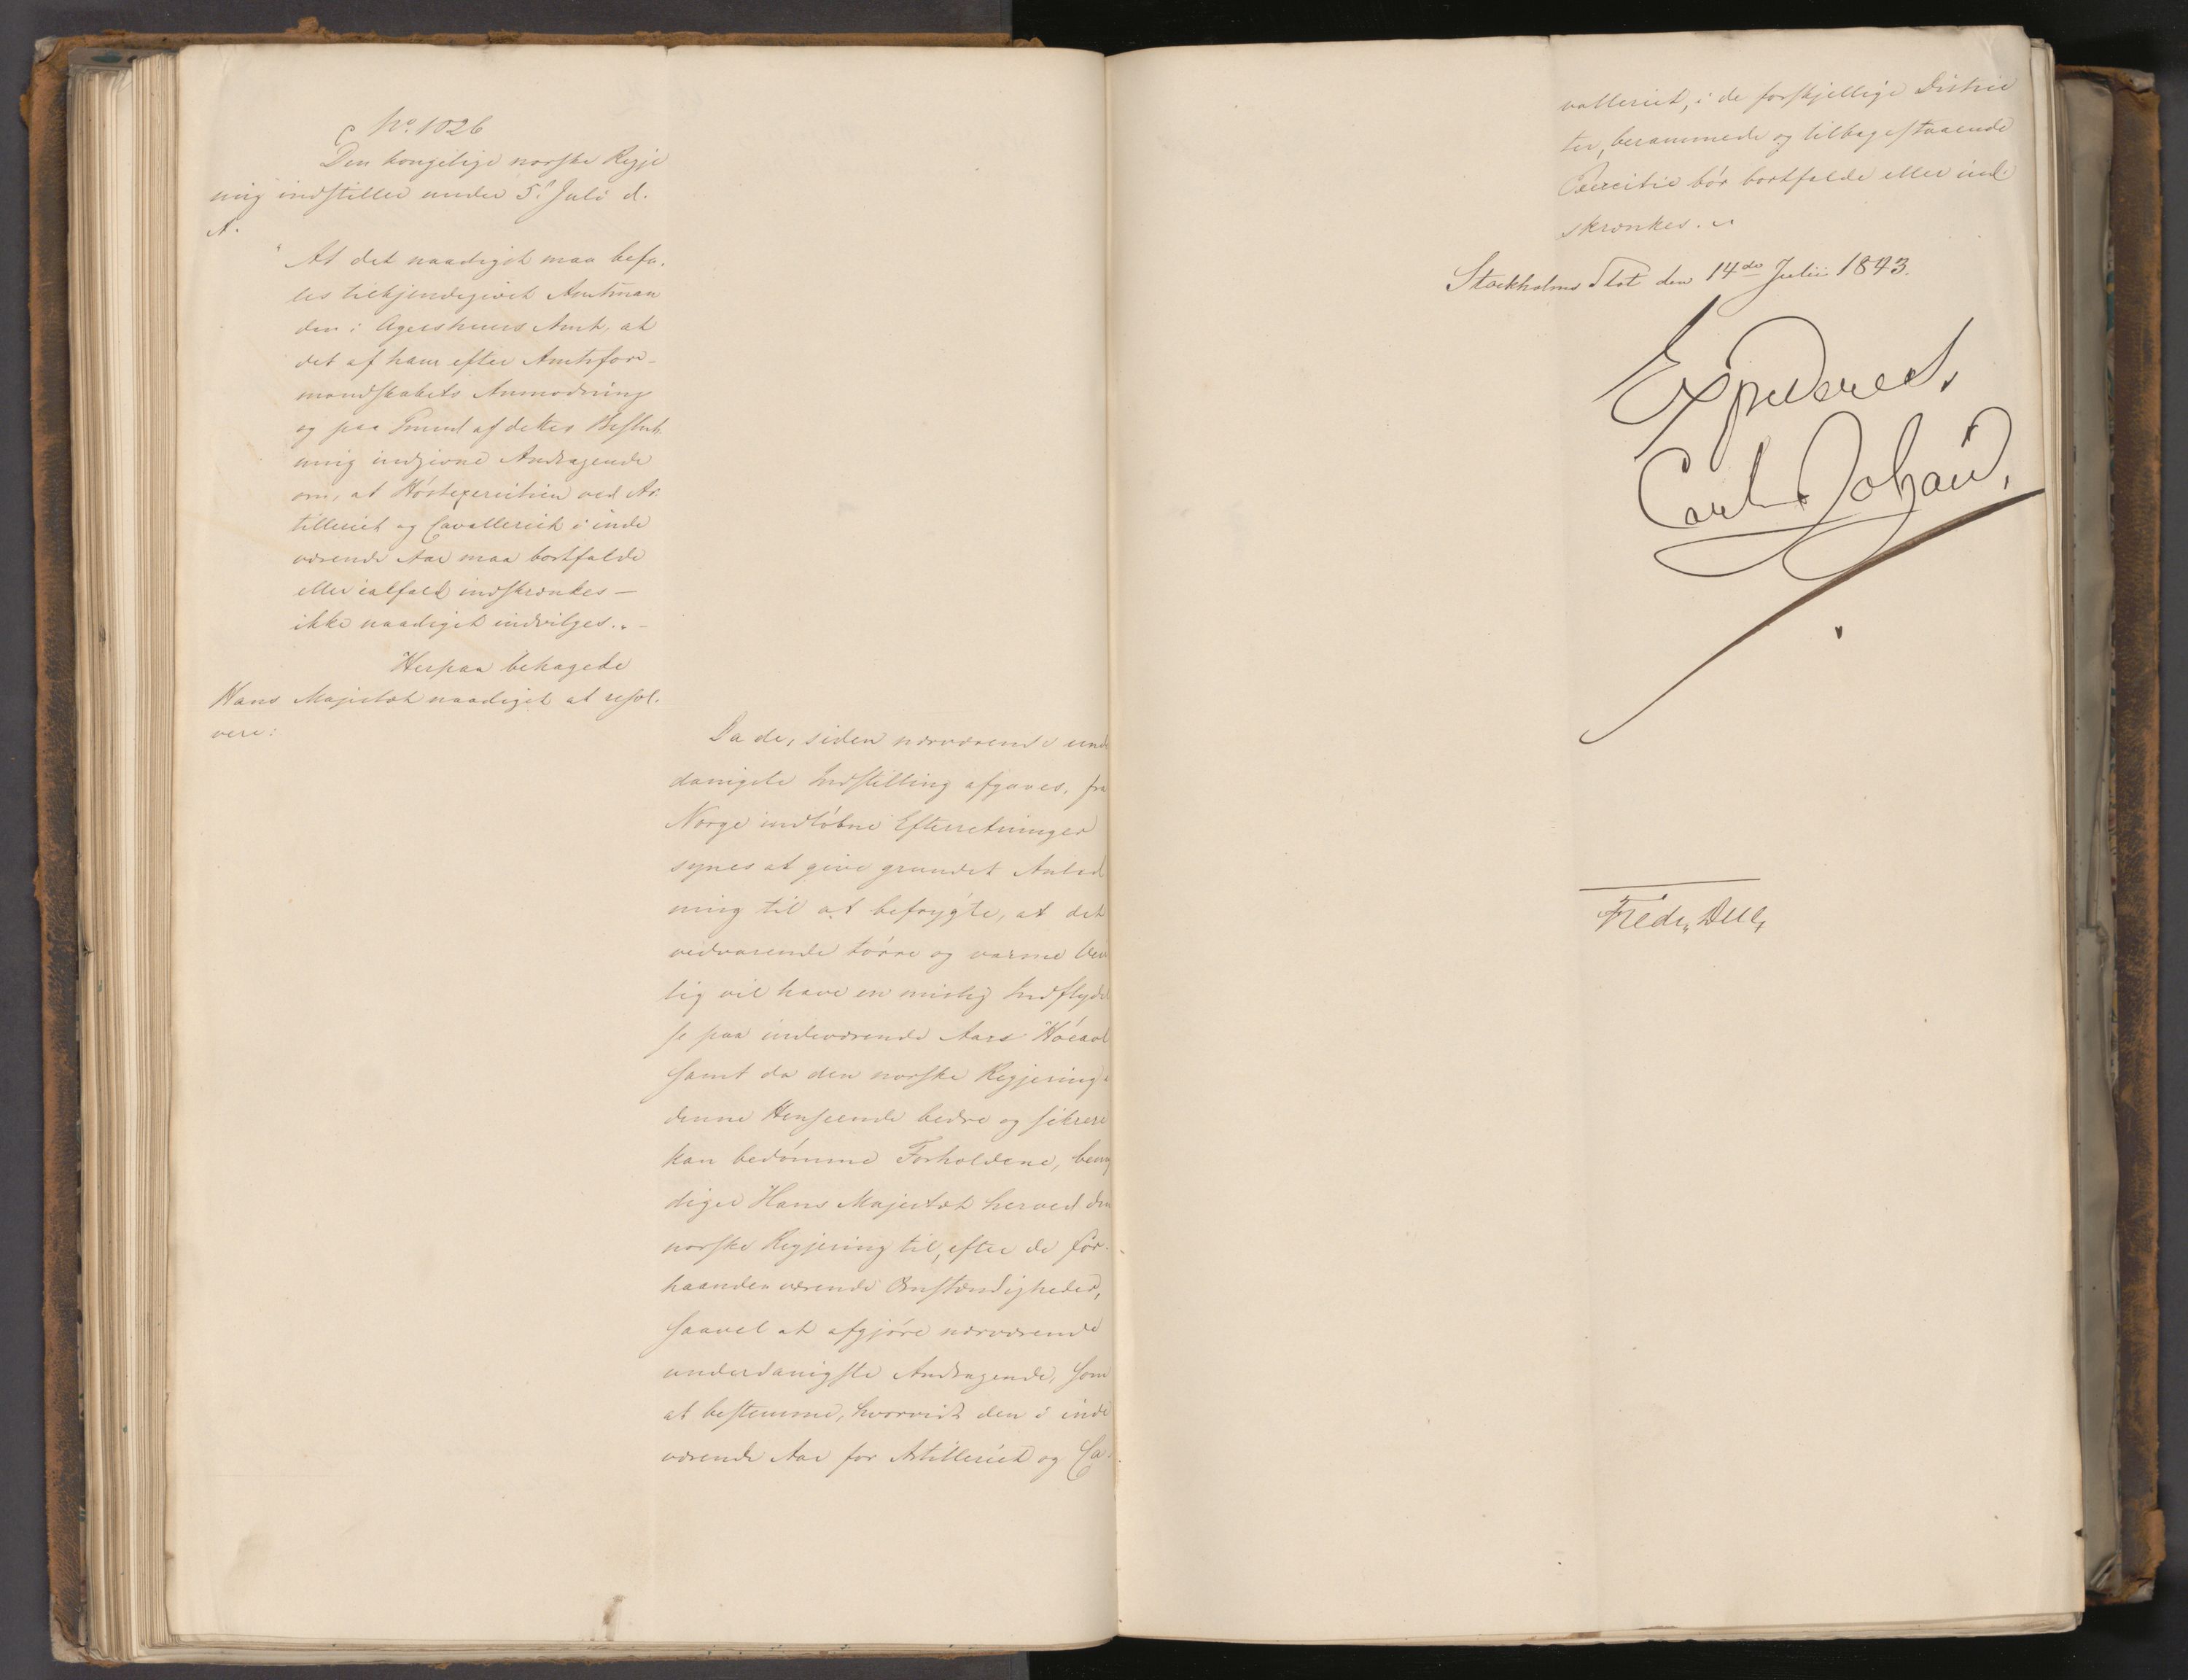 No. 1026
Den kongelige norske Regje
ring indstiller under 5te Juli d.
A.
"At det naadigst maa befa-
les tilkjendegivet Amtman
den i Agershuus Amt, at
det af ham efter Amtsfor-
mandskabets Anmodning
og paa Grund af dettes Beslut-
ning indgivne Andragende
om, at Höstexercitien ved Ar
tilleriet og Cavalleriet i inde
værende Aar maa bortfalde
eller ialfald indskrænkes —
ikke naadigst indvilges." —
Herpaa behagede
Hans Majestæt naadigst at resol-
vere:
Da de, siden nærværende und
danigste Indstilling afgaves, fra
Norge indløbne Efterretninger
synes at give grundet Anled
ning til at befrygte, at det
vedvarende tørre og varme Vei
lig vil have en mislig Indflydel
se paa indeværende Aars Høeavl
samt da den norske Regjering i
denne Henseende bedre og sikrere
kan bedømme Forholdene, bemyn
diger Hans Majestæt herved den
norske Regjering til, efter de for-
haanden værende Omstændigheder,
saavel at afgjøre nærværende
underdanigste Andragende, som
at bestemme, hvorvidt den i inde
værende Aar for Artilleriet og Ca-
valleriet, i de forskjellige Distric
ter, berammede og tilbagestaaende
Exercitie bör bortfalde eller ind-
skrænkes. "
Stockholms Slot den 14de Julii 1843.
Expederes.
Carl Johan,
Fredr. Due